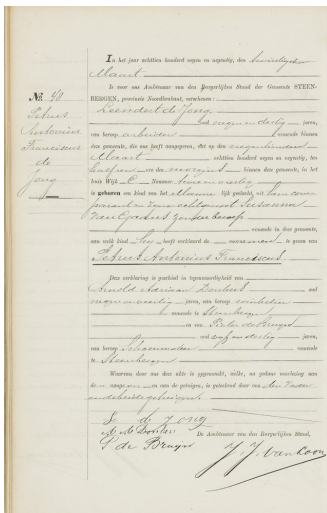 In het jaar achttien honderd negen en negentig, den twintigsten
Maart
Is voor ons Ambtenaar van den Burgerlijken Stand der Gemeente STEEN-
BERGEN, provincie Noordbrabant, verschenen:
Leendert de Jong
oud negen en dertig jaren,
van beroep arbeider wonende binnen
deze gemeente, die ons heeft aangegeven, dat op den negentienden
Maart achttien honderd negen en negentig, ten
half een ure des morgens binnen deze gemeente, in het
huis Wijk C Nummer
is geboren een kind van het Manne lijk geslacht, uit hem
comparant en zijne echtgenoot Susanna
van zonder beroep
wonende in deze gemeente,
aan welk kind hij heeft verklaard de voornamen te geven van
Petrus Antonius Franciscus
Deze verklaring is geschied in tegenwoordigheid van
Arnold Adriaan oud
negen en veertig jaren, van beroep winkelier
wonende te Steenbergen
en van Pieter de Bruijn
oud dertig jaren,
van beroep Schoenmaker wonende
te Steenbergen
Waarvan door ons deze akte is opgemaakt, welke, na gedane voorlezing aan
de n aangever en aan de getuigen, is geteekend door ons den Vader
en de beide getuigen
L. de Jong
P de Bruijn
De Ambtenaar van den Burgerlijken Stand,
J. J. van Loon
No. 40
Petrus
Antonius
Franciscus
de
Jong